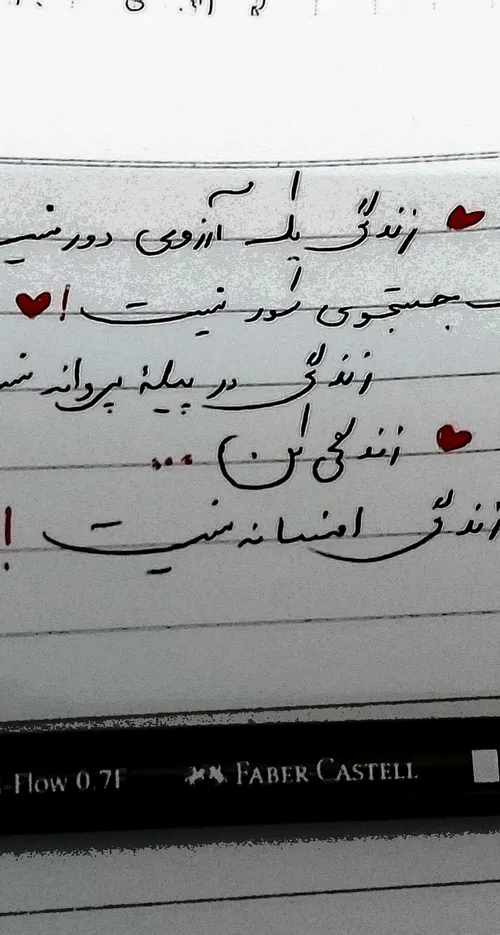 زندگی یک آرزوی دور نیست
جستجوی کور نیست !
زندگی در پیلهٔ پروانه
زندگی کن ...
زندگی افسانه نیست !
-Flow 0.7F FABER-CASTELL